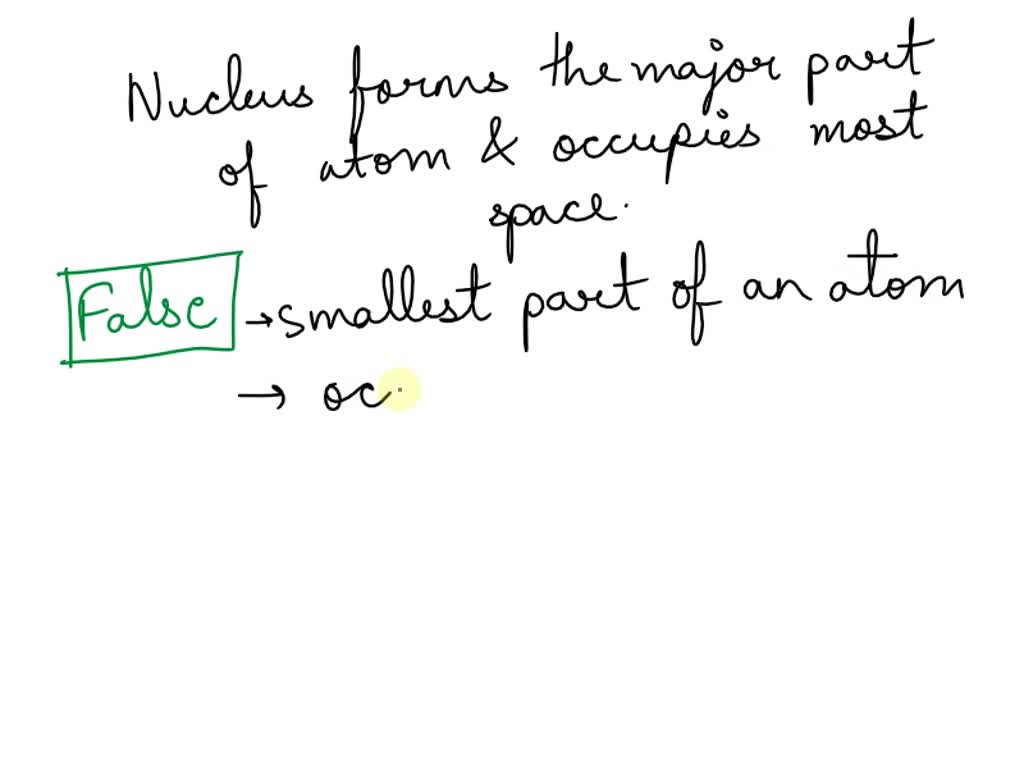 Nucleus forms the major part
of atom & occupies most
space.
False → smallest part of an atom
→ oc